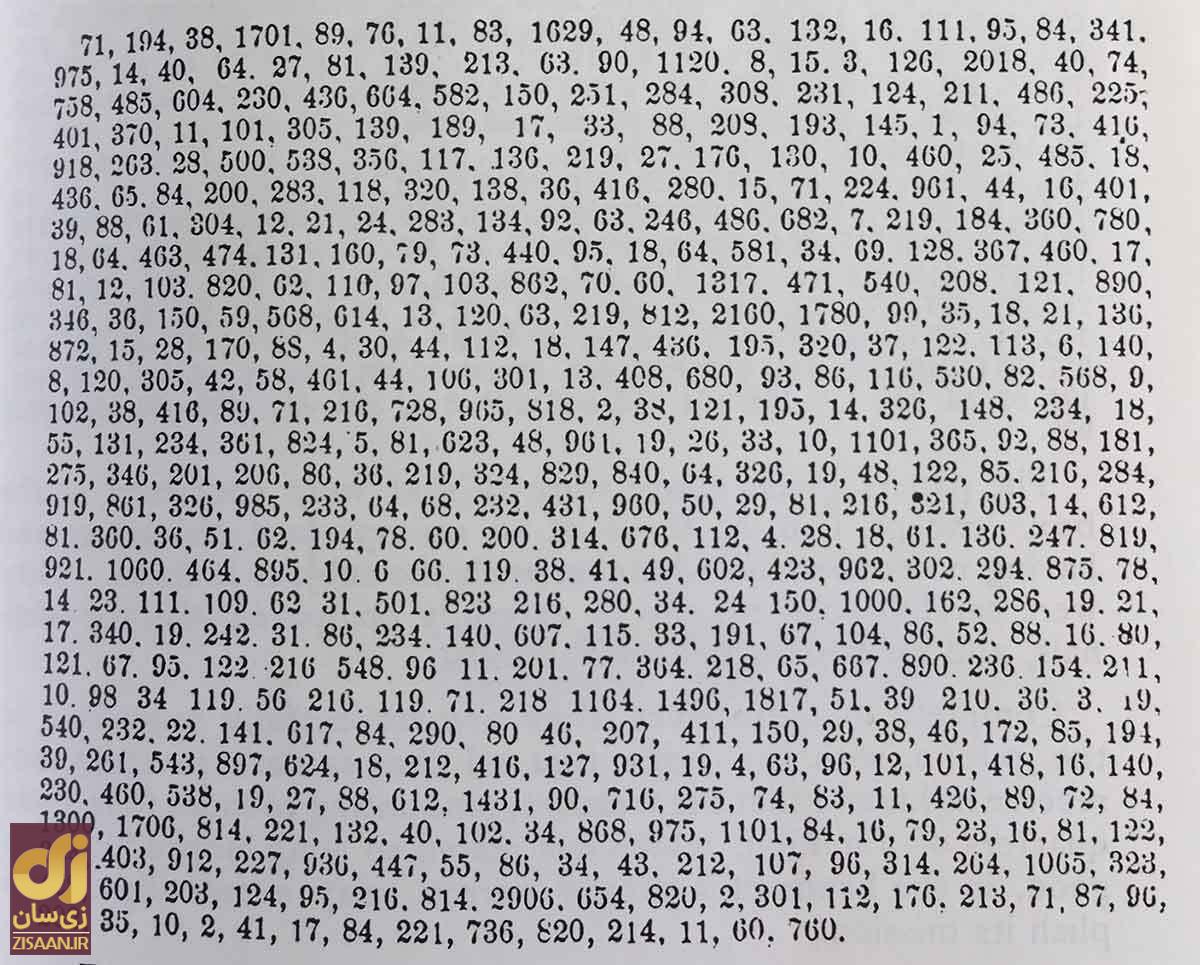 71, 194, 38, 1701, 89, 76, 11, 83, 1629, 48, 94, 63, 132, 16, 111, 95, 84, 341,
975, 14, 40, 64, 27, 81, 139, 213, 63, 90, 1120, 8, 15, 3, 126, 2018, 40, 74,
758, 485, 604, 230, 436, 664, 582, 150, 251, 284, 308, 231, 124, 211, 486, 225,
401, 370, 11, 101, 305, 139, 189, 17, 33, 88, 208, 193, 145, 1, 94, 73, 416,
918, 263, 28, 500, 538, 356, 117, 136, 219, 27, 176, 130, 10, 460, 25, 485, 18,
436, 65, 84, 200, 283, 118, 320, 138, 36, 416, 280, 15, 71, 224, 961, 44, 16, 401,
39, 88, 61, 304, 12, 21, 24, 283, 134, 92, 63, 246, 486, 682, 7, 219, 184, 360, 780,
18, 64, 463, 474, 131, 160, 79, 73, 440, 95, 18, 64, 581, 34, 69, 128, 367, 460, 17,
81, 12, 103, 820, 62, 110, 97, 103, 862, 70, 60, 1317, 471, 540, 208, 121, 890,
346, 36, 150, 59, 568, 614, 13, 120, 63, 219, 812, 2160, 1780, 99, 35, 18, 21, 136,
872, 15, 28, 170, 88, 4, 30, 44, 112, 18, 147, 436, 195, 320, 37, 122, 113, 6, 140,
8, 120, 305, 42, 58, 461, 44, 106, 301, 13, 408, 680, 93, 86, 116, 530, 82, 568, 9,
102, 38, 416, 89, 71, 216, 728, 965, 818, 2, 38, 121, 195, 14, 326, 148, 234, 18,
55, 131, 234, 361, 824, 5, 81, 623, 48, 961, 19, 26, 33, 10, 1101, 365, 92, 88, 181,
275, 346, 201, 206, 86, 36, 219, 324, 829, 840, 64, 326, 19, 48, 122, 85, 216, 284,
919, 861, 326, 985, 233, 64, 68, 232, 431, 960, 50, 29, 81, 216, 321, 603, 14, 612,
81, 360, 36, 51, 62, 194, 78, 60, 200, 314, 676, 112, 4, 28, 18, 61, 136, 247, 819,
921, 1060, 464, 895, 10, 6 66, 119, 38, 41, 49, 602, 423, 962, 302, 294, 875, 78,
14 23, 111, 109, 62 31, 501, 823 216, 280, 34, 24 150, 1000, 162, 286, 19, 21,
17, 340, 19, 242, 31, 86, 234, 140, 607, 115, 33, 191, 67, 104, 86, 52, 88, 16, 80,
121, 67, 95, 122, 216 548, 96 11, 201, 77, 364, 218, 65, 667, 890, 236, 154, 211,
10, 98 34 119, 56 216, 119, 71, 218 1164, 1496, 1817, 51, 39 210, 36, 3, 19,
540, 232, 22, 141, 617, 84, 290, 80 46, 207, 411, 150, 29, 38, 46, 172, 85, 194,
39, 261, 543, 897, 624, 18, 212, 416, 127, 931, 19, 4, 63, 96, 12, 101, 418, 16, 140,
230, 460, 538, 19, 27, 88, 612, 1431, 90, 716, 275, 74, 83, 11, 426, 89, 72, 84,
1300, 1706, 814, 221, 132, 40, 102, 34, 868, 975, 1101, 84, 16, 79, 23, 16, 81, 122,
403, 912, 227, 936, 447, 55, 86, 34, 43, 212, 107, 96, 314, 264, 1065, 323,
601, 203, 124, 95, 216, 814, 2906, 654, 820, 2, 301, 112, 176, 213, 71, 87, 96,
35, 10, 2, 41, 17, 84, 221, 736, 820, 214, 11, 60, 760.
زی‌سان
ZISAAN.IR